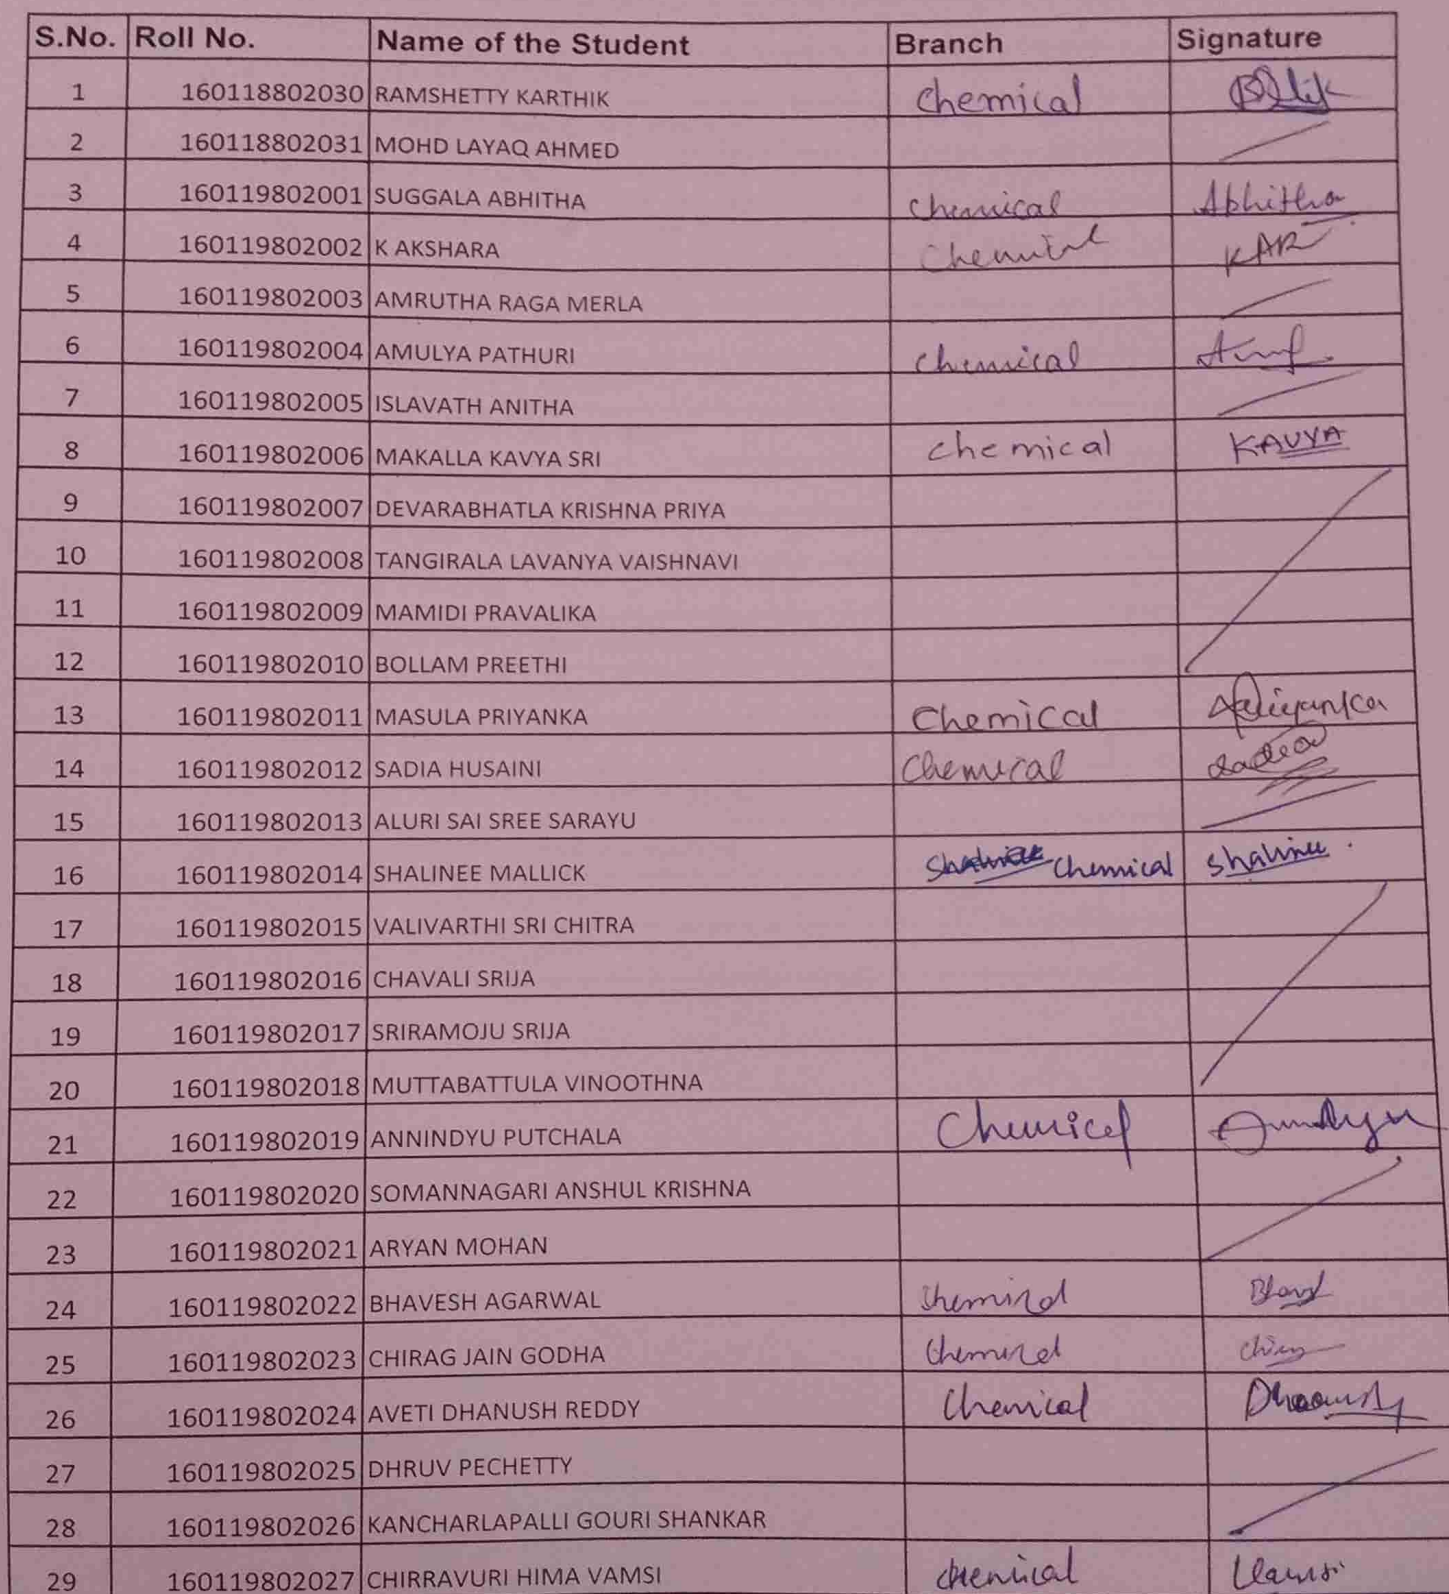 S.No. Roll No. Name of the Student Branch Signature
1 160118802030 RAMSHETTY KARTHIK Chemical
2 160118802031 MOHD LAYAQ AHMED
3 160119802001 SUGGALA ABHITHA Chemical Abhitha
4 160119802002 K AKSHARA Chemical KAR
5 160119802003 AMRUTHA RAGA MERLA
6 160119802004 AMULYA PATHURI Chemical
7 160119802005 ISLAVATH ANITHA
8 160119802006 MAKALLA KAVYA SRI Chemical KAVYA
9 160119802007 DEVARABHATLA KRISHNA PRIYA
10 160119802008 TANGIRALA LAVANYA VAISHNAVI
11 160119802009 MAMIDI PRAVALIKA
12 160119802010 BOLLAM PREETHI
13 160119802011 MASULA PRIYANKA Chemical Priyanka
14 160119802012 SADIA HUSAINI Chemical Sadia
15 160119802013 ALURI SAI SREE SARAYU
16 160119802014 SHALINEE MALLICK Chemical Shalinee
17 160119802015 VALIVARTHI SRI CHITRA
18 160119802016 CHAVALI SRIJA
19 160119802017 SRIRAMOJU SRIJA
20 160119802018 MUTTABATTULA VINOOTHNA
21 160119802019 ANNINDYU PUTCHALA Chemical
22 160119802020 SOMANNAGARI ANSHUL KRISHNA
23 160119802021 ARYAN MOHAN
24 160119802022 BHAVESH AGARWAL Chemical
25 160119802023 CHIRAG JAIN GODHA Chemical
26 160119802024 AVETI DHANUSH REDDY Chemical
27 160119802025 DHRUV PECHETTY
28 160119802026 KANCHARLAPALLI GOURI SHANKAR
29 160119802027 CHIRRAVURI HIMA VAMSI Chemical Vamsi